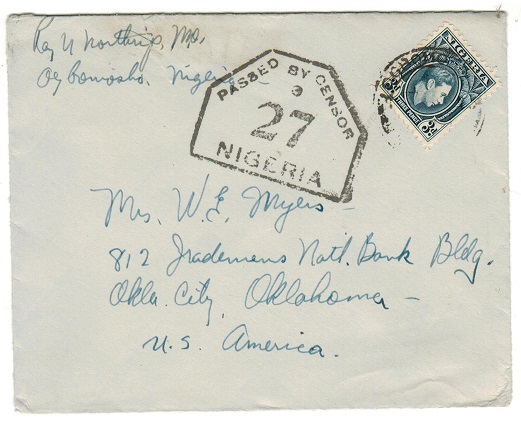 Roy U Northrip, Mo,
Ogbomosho. Nigeria
PASSED BY CENSOR
3
27
NIGERIA
NIGERIA
3d
Mrs. W. E. Myers -
812 Trademens Natl. Bank Bldg.
Okla. City, Oklahoma -
U.S. America.